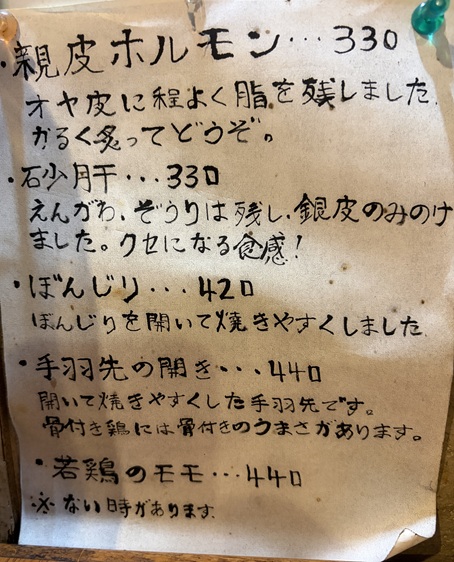 ・親皮ホルモン…330
オヤ皮に程よく脂を残しました。
かるく炙ってどうぞ。
・砂肝…330
えんがわ、ぞうりは残し、銀皮のみのけ
ました。クセになる食感！
・ぼんじり…420
ぼんじりを開いて焼きやすくしました
・手羽先の開き…440
開いて焼きやすくした手羽先です。
骨付き鶏には骨付きのうまさがあります。
・若鶏のモモ…440
※ない時があります